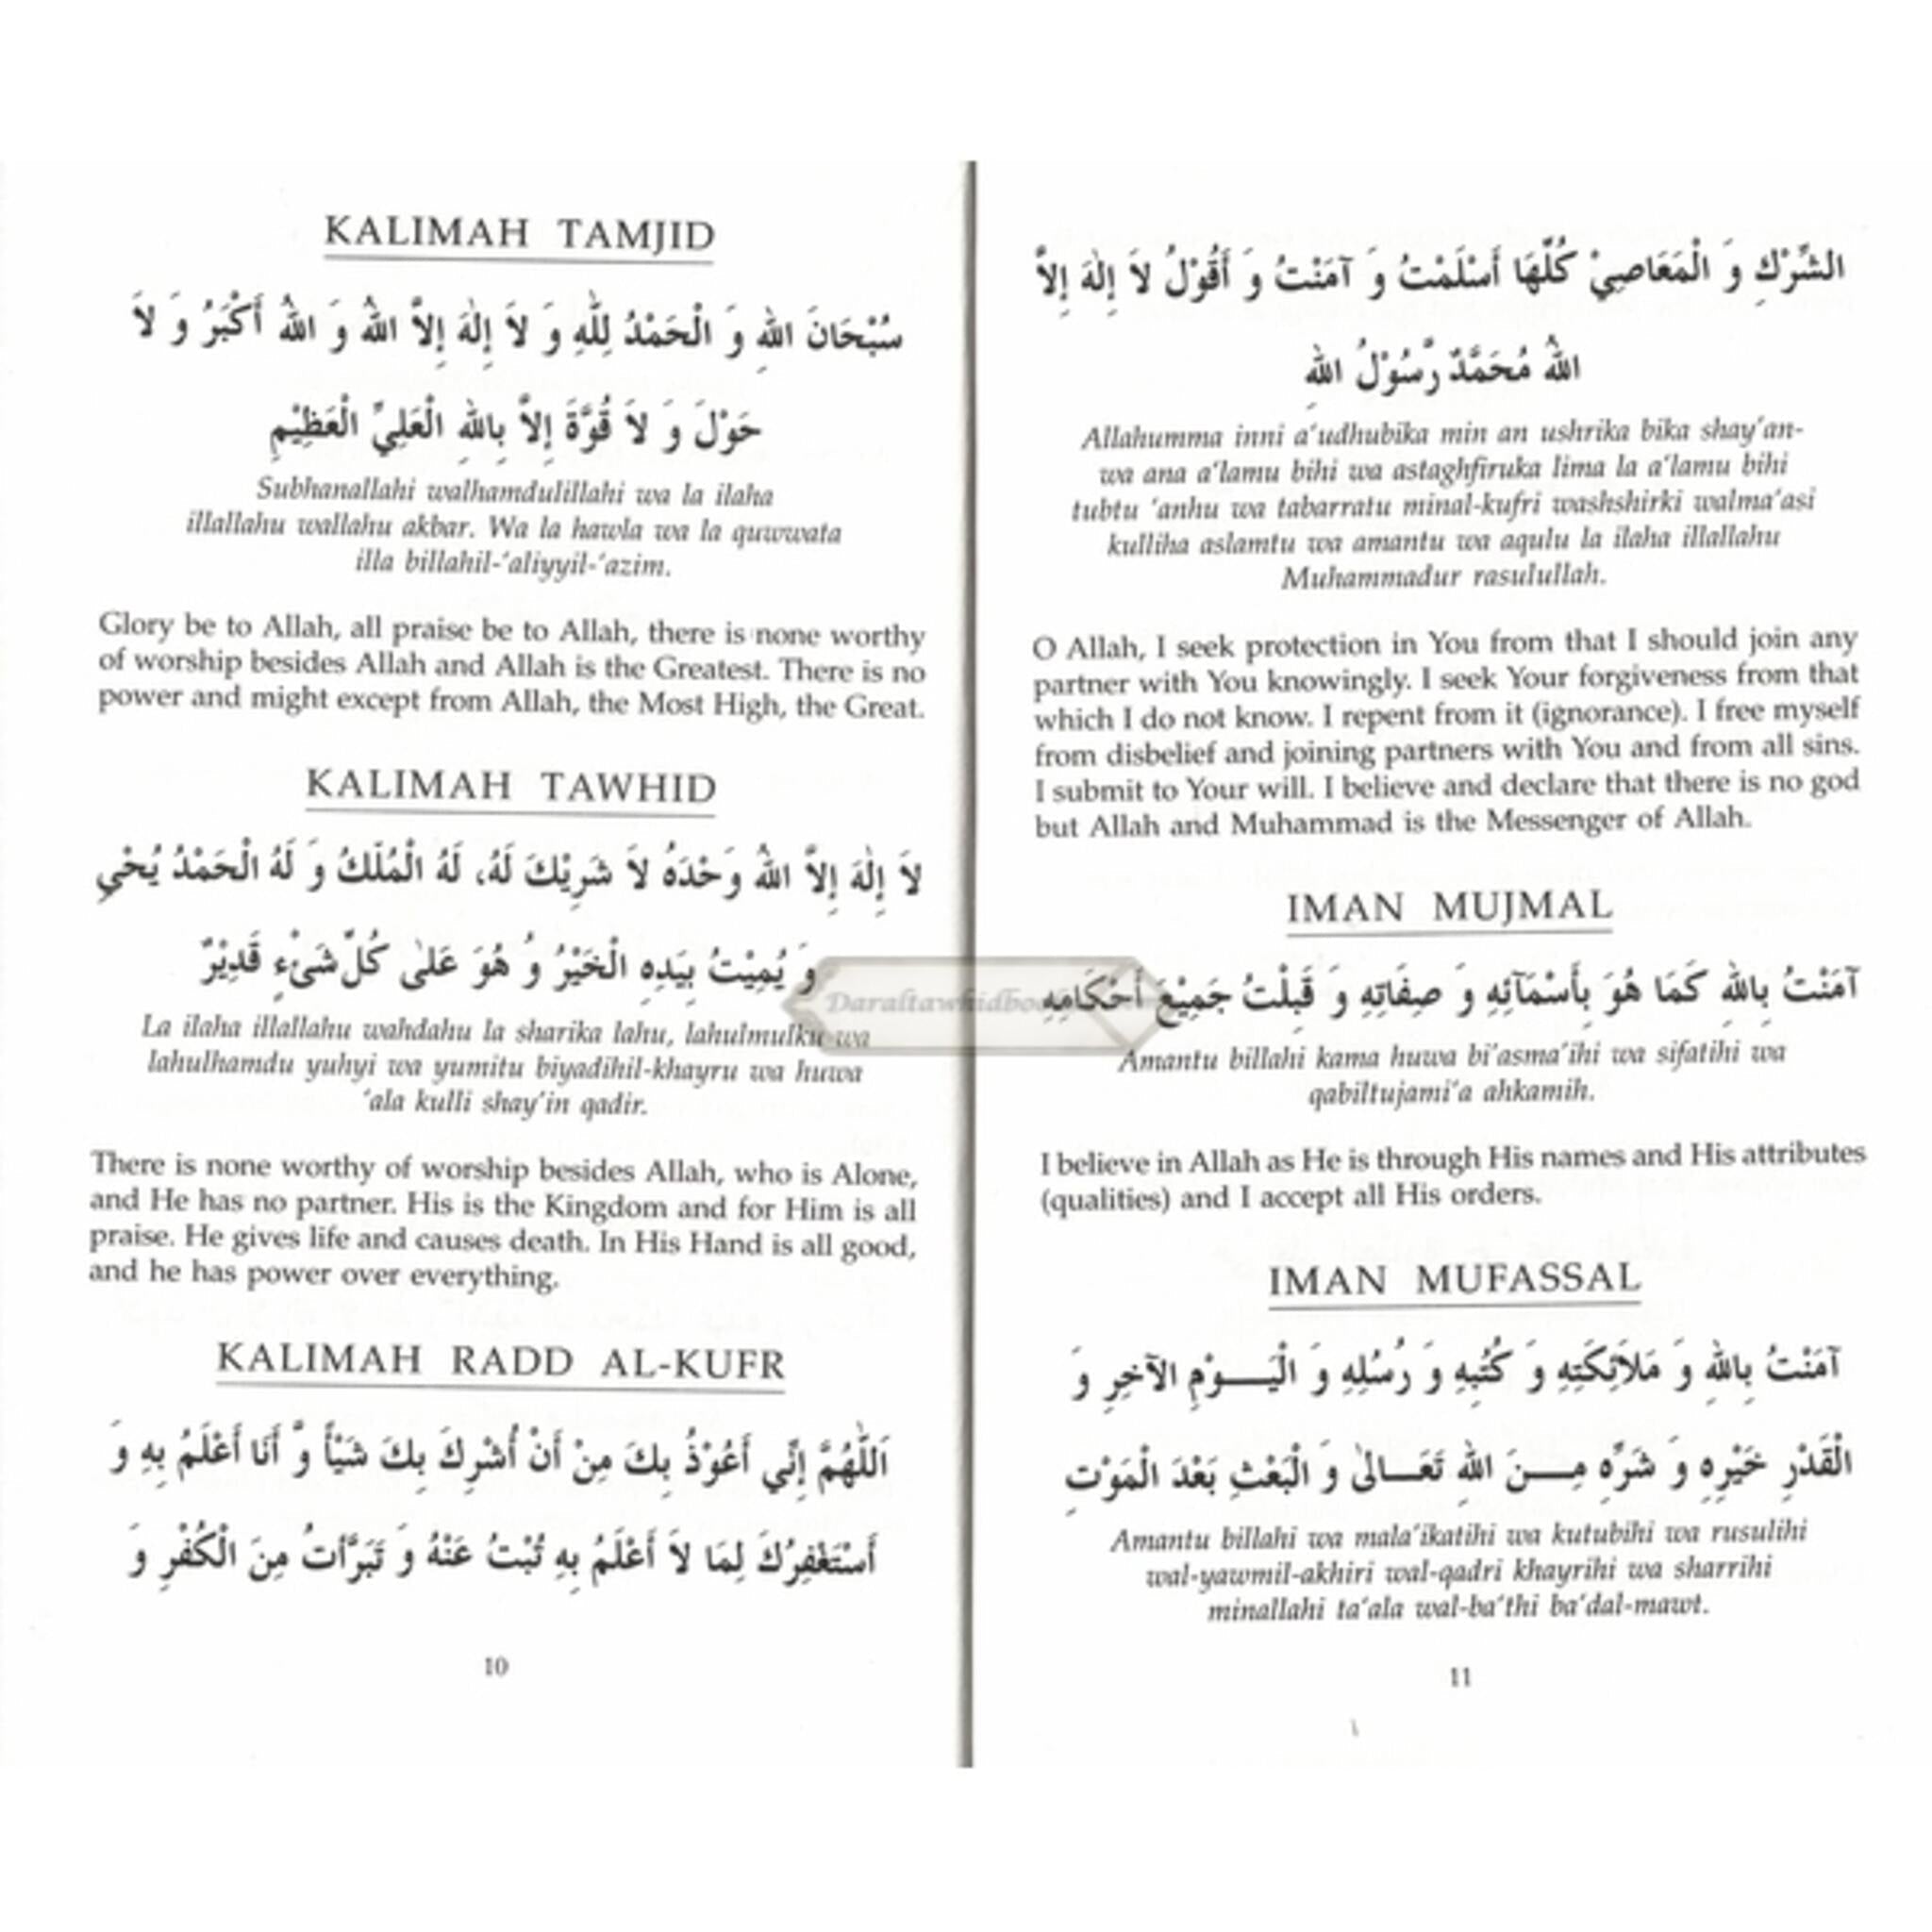 KALIMAH TAMJID
سُبْحَانَ اللهِ وَ الْحَمْدُ لِلّٰهِ وَ لاَ إِلٰهَ إِلاَّ اللهُ وَ اللهُ أَكْبَرُ وَ لاَ
حَوْلَ وَ لاَ قُوَّةَ إِلاَّ بِاللهِ الْعَلِيِّ الْعَظِيْمِ
Subhanallahi walhamdulillahi wa la ilaha
illallahu wallahu akbar. Wa la hawla wa la quwwata
illa billahil-‘aliyyil-‘azim.
Glory be to Allah, all praise be to Allah, there is none worthy
of worship besides Allah and Allah is the Greatest. There is no
power and might except from Allah, the Most High, the Great.
KALIMAH TAWHID
لاَ إِلٰهَ إِلاَّ اللهُ وَحْدَهُ لاَ شَرِيْكَ لَهُ، لَهُ الْمُلْكُ وَ لَهُ الْحَمْدُ يُحْيِ
وَ يُمِيْتُ بِيَدِهِ الْخَيْرُ وَ هُوَ عَلٰى كُلِّ شَىْءٍ قَدِيْرٌ
La ilaha illallahu wahdahu la sharika lahu, lahulmulku wa
lahulhamdu yuhyi wa yumitu biyadihil-khayru wa huwa
‘ala kulli shay’in qadir.
There is none worthy of worship besides Allah, who is Alone,
and He has no partner. His is the Kingdom and for Him is all
praise. He gives life and causes death. In His Hand is all good,
and he has power over everything.
KALIMAH RADD AL-KUFR
اَللّٰهُمَّ إِنِّي أَعُوْذُ بِكَ مِنْ أَنْ أُشْرِكَ بِكَ شَيْأً وَّ أَنَا أَعْلَمُ بِهِ وَ
أَسْتَغْفِرُكَ لِمَا لاَ أَعْلَمُ بِهِ تُبْتُ عَنْهُ وَ تَبَرَّأْتُ مِنَ الْكُفْرِ وَ
10
الشِّرْكِ وَ الْمَعَاصِيْ كُلِّهَا أَسْلَمْتُ وَ آمَنْتُ وَ أَقُوْلُ لاَ إِلٰهَ إِلاَّ
اللهُ مُحَمَّدٌ رَّسُوْلُ اللهِ
Allahumma inni a‘udhubika min an ushrika bika shay’an-
wa ana a‘lamu bihi wa astaghfiruka lima la a‘lamu bihi
tubtu ‘anhu wa tabarratu minal-kufri washshirki walma‘asi
kulliha aslamtu wa amantu wa aqulu la ilaha illallahu
Muhammadur rasulullah.
O Allah, I seek protection in You from that I should join any
partner with You knowingly. I seek Your forgiveness from that
which I do not know. I repent from it (ignorance). I free myself
from disbelief and joining partners with You and from all sins.
I submit to Your will. I believe and declare that there is no god
but Allah and Muhammad is the Messenger of Allah.
IMAN MUJMAL
آمَنْتُ بِاللهِ كَمَا هُوَ بِأَسْمَآئِهِ وَ صِفَاتِهِ وَ قَبِلْتُ جَمِيْعَ أَحْكَامِهِ
Amantu billahi kama huwa bi’asma’ihi wa sifatihi wa
qabiltujami‘a ahkamih.
I believe in Allah as He is through His names and His attributes
(qualities) and I accept all His orders.
IMAN MUFASSAL
آمَنْتُ بِاللهِ وَ مَلاَئِكَتِهِ وَ كُتُبِهِ وَ رُسُلِهِ وَ الْيَـــوْمِ الآخِرِ وَ
الْقَدْرِ خَيْرِهِ وَ شَرِّهِ مِـــنَ اللهِ تَعَـــالىٰ وَ الْبَعْثِ بَعْدَ الْمَوْتِ
Amantu billahi wa mala’ikatihi wa kutubihi wa rusulihi
wal-yawmil-akhiri wal-qadri khayrihi wa sharrihi
minallahi ta‘ala wal-ba‘thi ba‘dal-mawt.
11